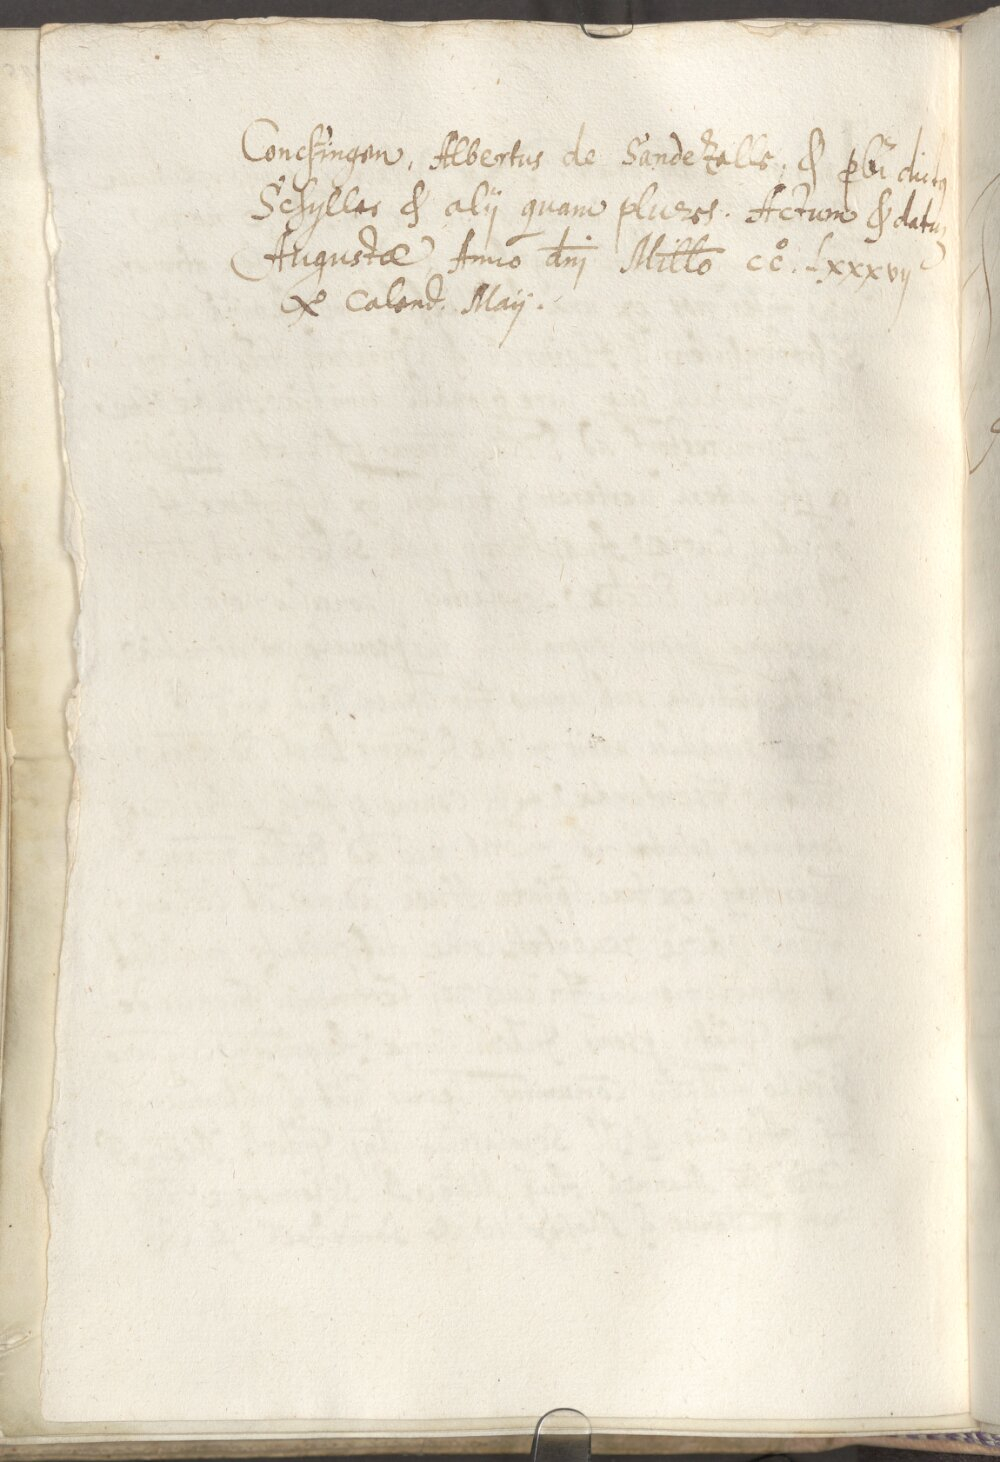 Albertus de Sande Zelle, & dictus
Schyller & alij quam plures. Actum & datum
Augustae Anno dnj Millo cc°. Lxxxvij
x Calend. Maij.